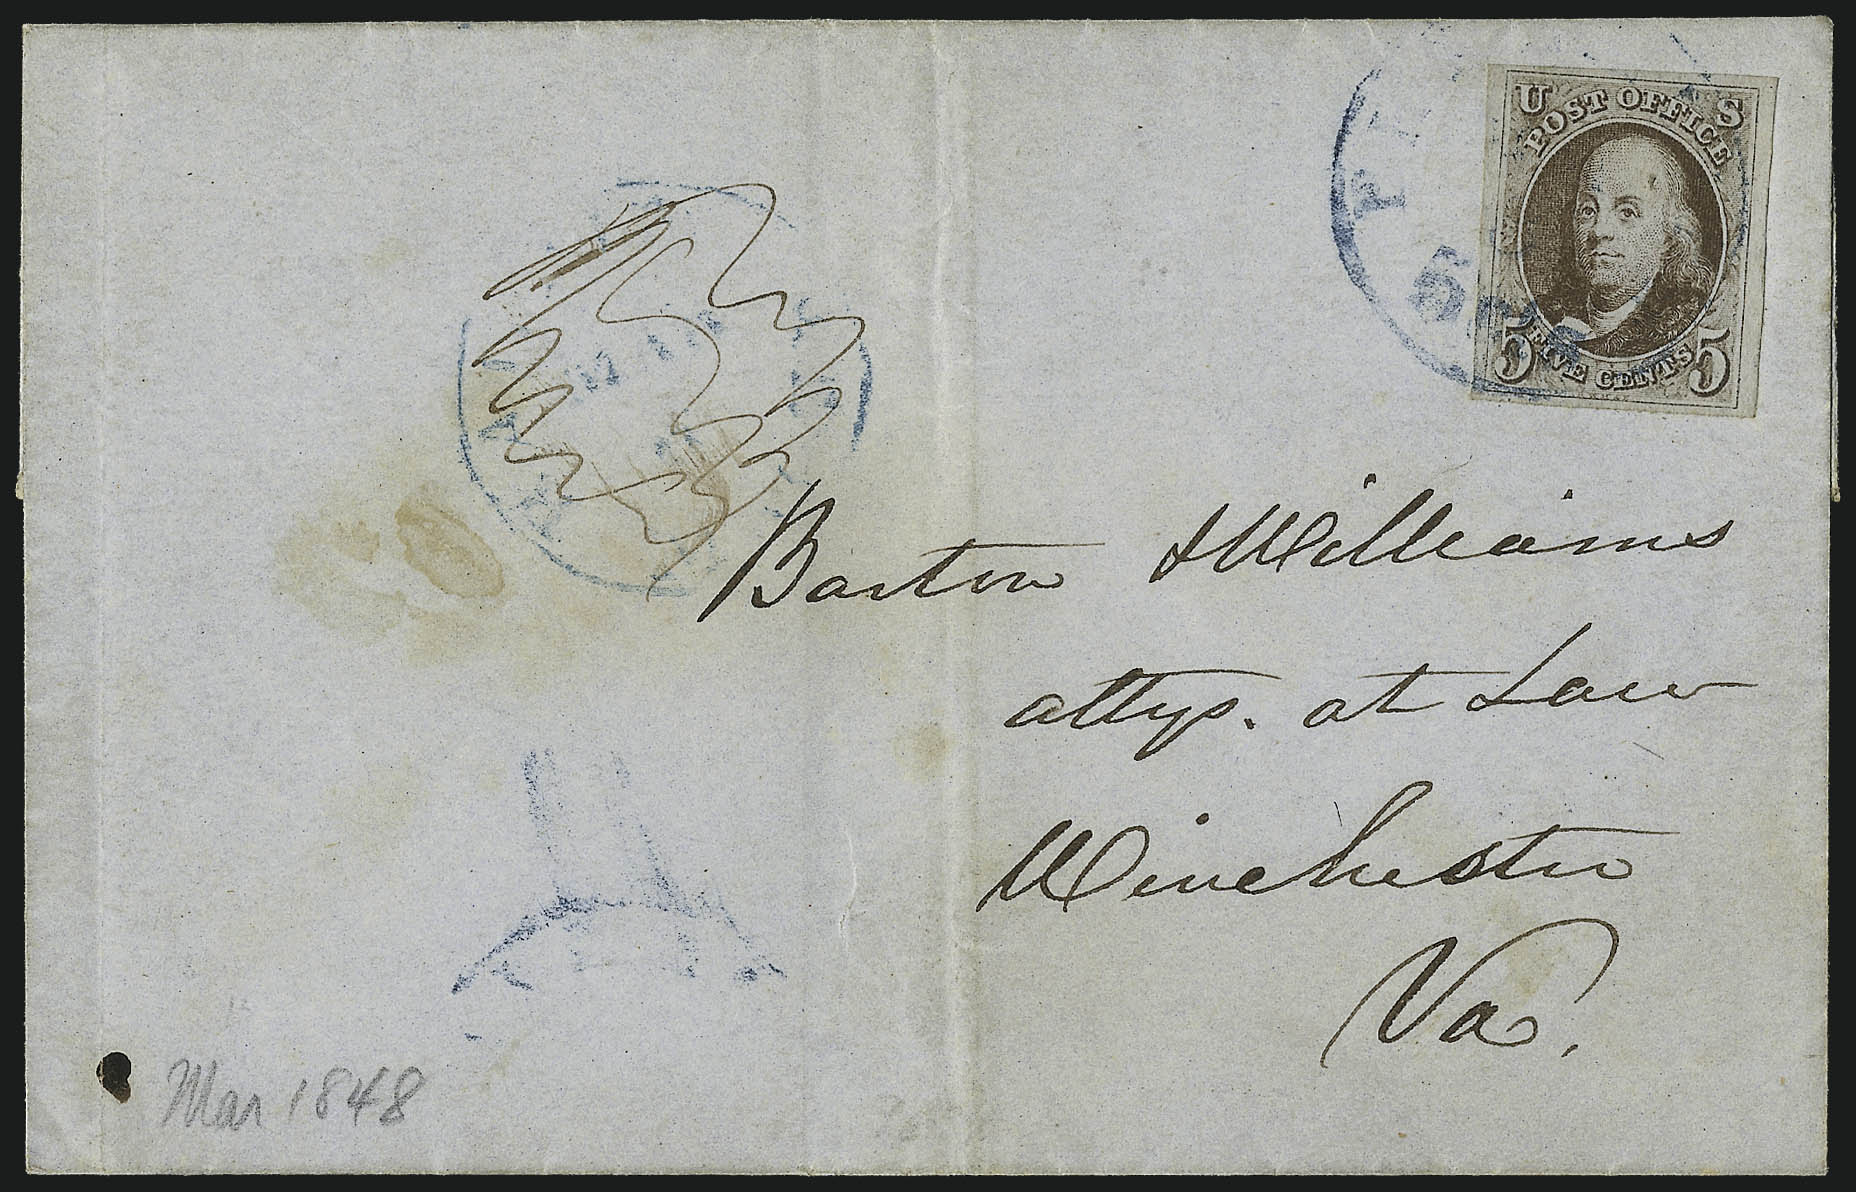 U S
POST OFFICE
5 FIVE CENTS 5
5 cts
Barton & Williams
attys. at Law
Winchester
Va.
Mar 1848